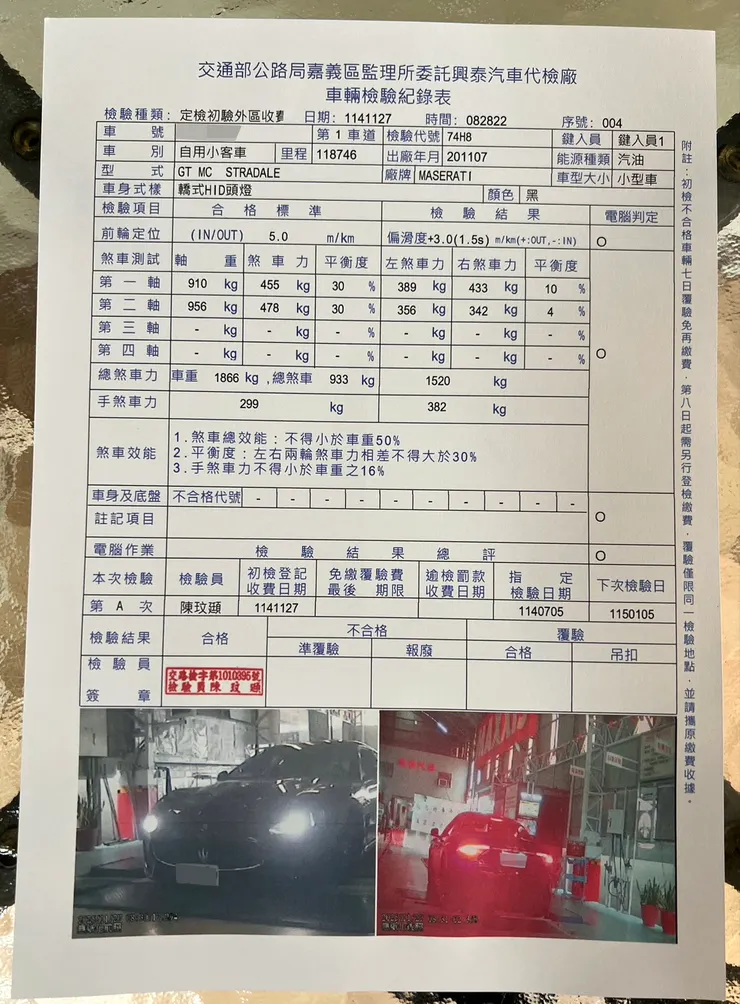 交通部公路局嘉義區監理所委託興泰汽車代檢廠
車輛檢驗紀錄表
檢驗種類: 定檢初驗外區收費 日期: 1141127 時間: 082822 序號: 004
車號 第1車道 檢驗代號 74H8 鍵入人員 鍵入員1
車別 自用小客車 里程 118746 出廠年月 201107 能源種類 汽油
型式 GT MC STRADALE 廠牌 MASERATI 車型大小 小型車
車身式樣 轎式HID頭燈 顏色 黑
檢驗項目 合格標準 檢驗結果 電腦判定
前輪定位 (IN/OUT) 5.0 m/km 偏滑度+3.0(1.5s) m/km(+:OUT,-:IN) O
煞車測試 軸重 煞車力 平衡度 左煞車力 右煞車力 平衡度
第一軸 910 kg 455 kg 30 % 389 kg 433 kg 10 %
第二軸 956 kg 478 kg 30 % 356 kg 342 kg 4 %
第三軸 - kg - kg - % - kg - kg - %
第四軸 - kg - kg - % - kg - kg - % O
總煞車力 車重 1866 kg ,總煞車 933 kg 1520 kg
手煞車力 299 kg 382 kg
煞車效能
1.煞車總效能:不得小於車重50%
2.平衡度:左右兩輪煞車力相差不得大於30%
3.手煞車力不得小於車重之16%
車身及底盤 不合格代號 - - - - - - - - - -
註記項目 O
電腦作業 檢驗結果總評 O
本次檢驗 檢驗員 初檢登記收費日期 免繳覆驗費最後期限 逾檢罰款收費日期 指定檢驗日期 下次檢驗日
第A次 陳玟頲 1141127 1140705 1150105
檢驗結果 合格 不合格 覆驗
準覆驗 報廢 合格 吊扣
檢驗員
簽章
交路檢字第1010395號
檢驗員陳玟頲
附註:初檢不合格車輛七日覆驗免再繳費,第八日起需另行登檢繳費,覆驗僅限同一檢驗地點,並請攜原繳費收據。